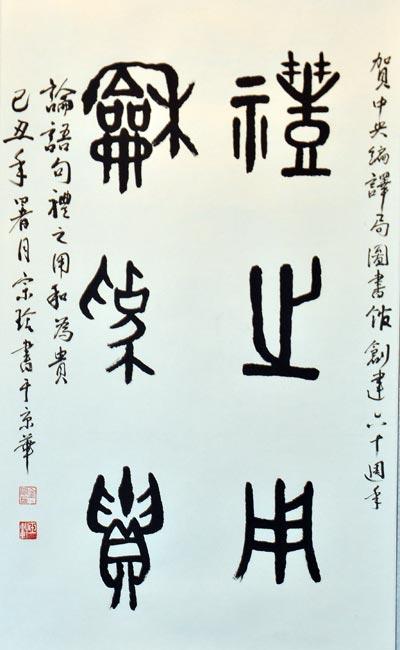 賀中央編譯局圖書館創建六十週年
禮之用
龢為貴
論語句禮之用和為貴
己丑年署月宗書于京華